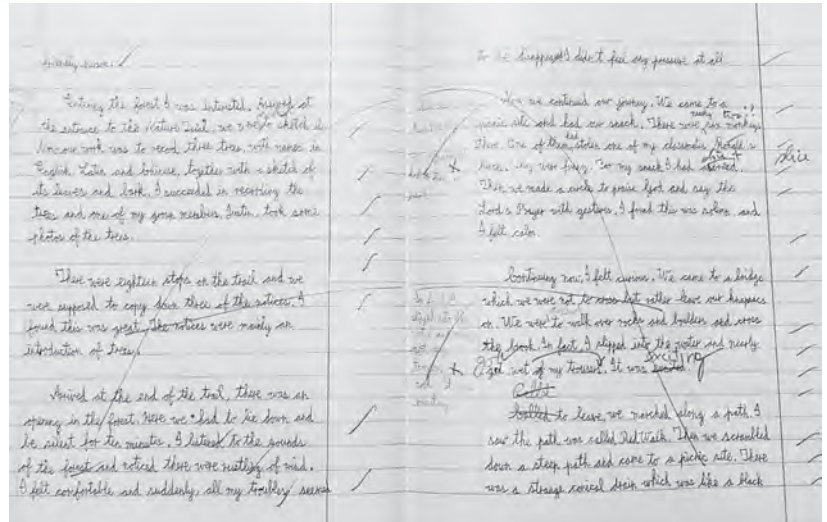 Entering the forest I was interested. Arrived at
the entrance to the Nature Trail, we sketch
our work was to record three trees with names in
English, Latin and Chinese, together with a sketch of
its leaves and bark. I succeeded in recording the
trees and one of my group members, Justin, took some
photos of the trees.
There were eighteen stops on the trail and we
were supposed to copy down three of the notices. I
found this was great. The notices were mainly an
introduction of trees.
Arrived at the end of the trail, there was an
opening in the forest. Here we had to lie down and
be silent for ten minutes. I listened to the sounds
of the forest and noticed there were rustling of wind.
I felt comfortable and suddenly, all my troubles seemed
to disappeared I didn't feel any pressure at all
Now we continued our journey. We came to a
picnic site and had our snack. There were six monkeys
there. One of them stolen one of my classmates,
slice
For my snack I had
Then we made a circle to praise God and say the
Lord's Prayer with gestures. I found this was solemn and
I felt calm.
Continuing now, I felt curious. We came to a bridge
which we were not to cross but rather leave our
on. We were to walk over rocks and boulders and cross
the brook. In fact, I slipped into the water and nearly
out of my trousers. It was exciting
Called
to leave, we marched along a path. I
saw the path was called Red Walk. Then we scrambled
down a steep path and came to a picnic site. There
was a strange conical drain which was like a black